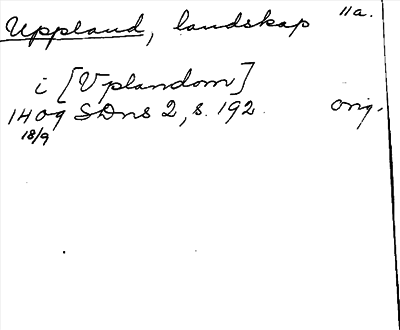 Uppland, landskap 11a.
i [Vplandom]
1409 SDns 2, s. 192. orig.
18/9